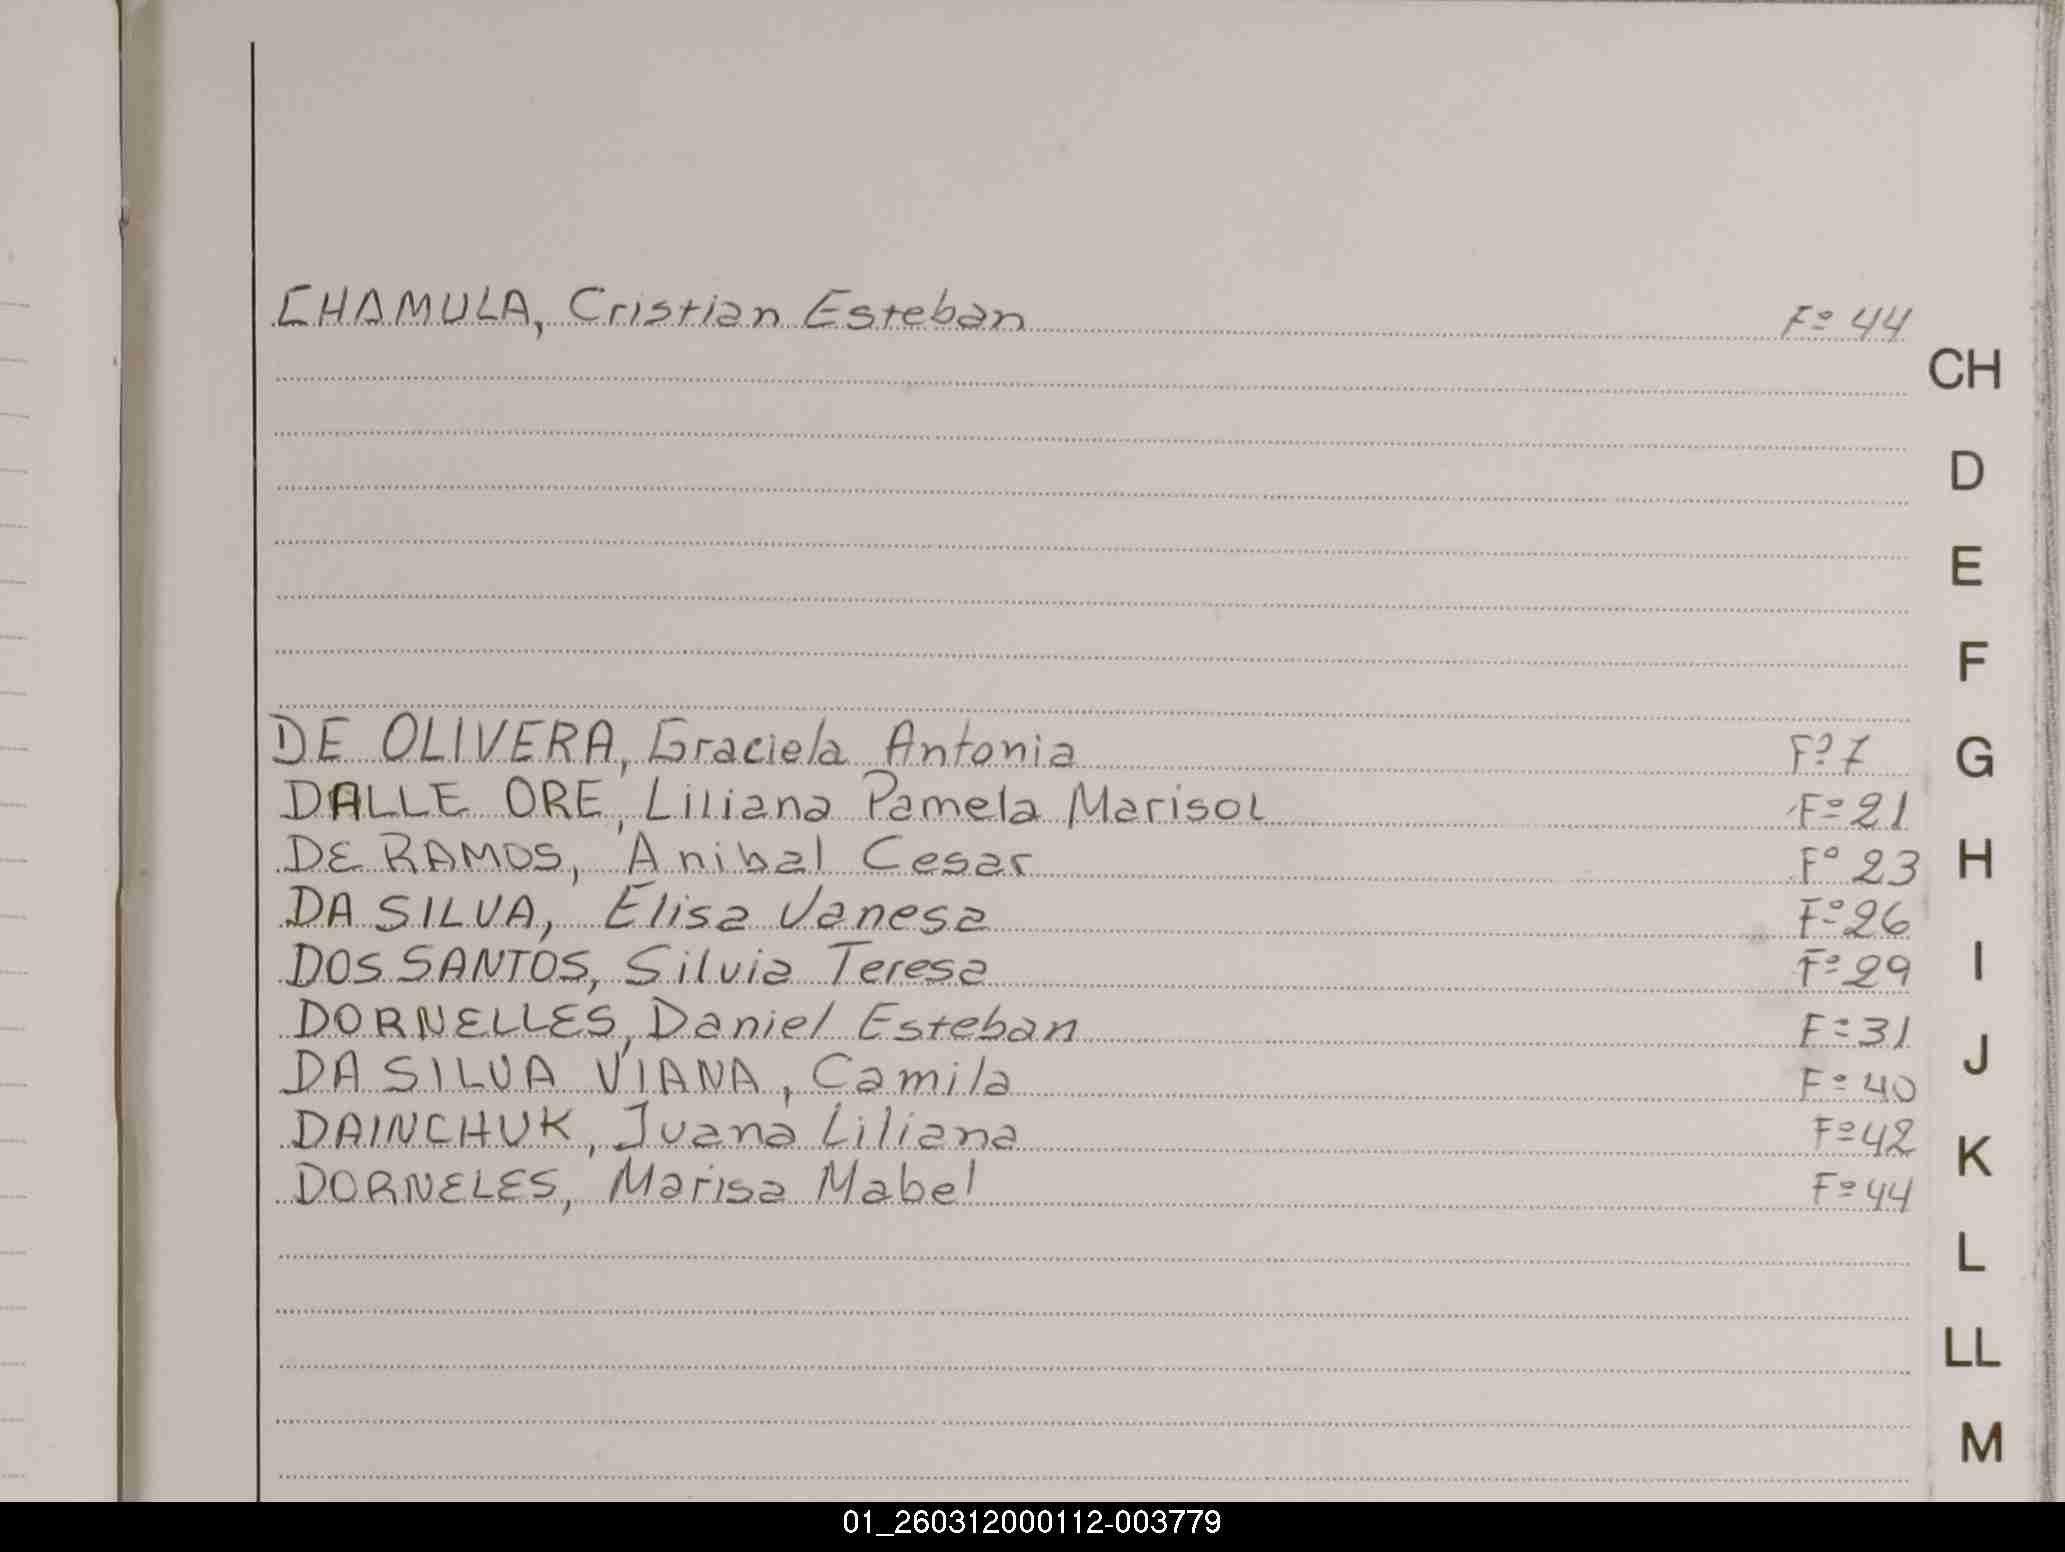 CHAMULA, Cristian Esteban Fº 44
CH
D
E
F
DE OLIVERA, Graciela Antonia Fº 7
G
DALLE ORE, Liliana Pamela Marisol Fº 21
DE RAMOS, Anibal Cesar Fº 23
H
DA SILVA, Elisa Vanesa Fº 26
DOS SANTOS, Silvia Teresa Fº 29
I
DORNELLES, Daniel Esteban Fº 31
J
DA SILVA VIANA, Camila Fº 40
DAINCHUK, Juana Liliana Fº 42
K
DORNELES, Marisa Mabel Fº 44
L
LL
M
01_260312000112-003779